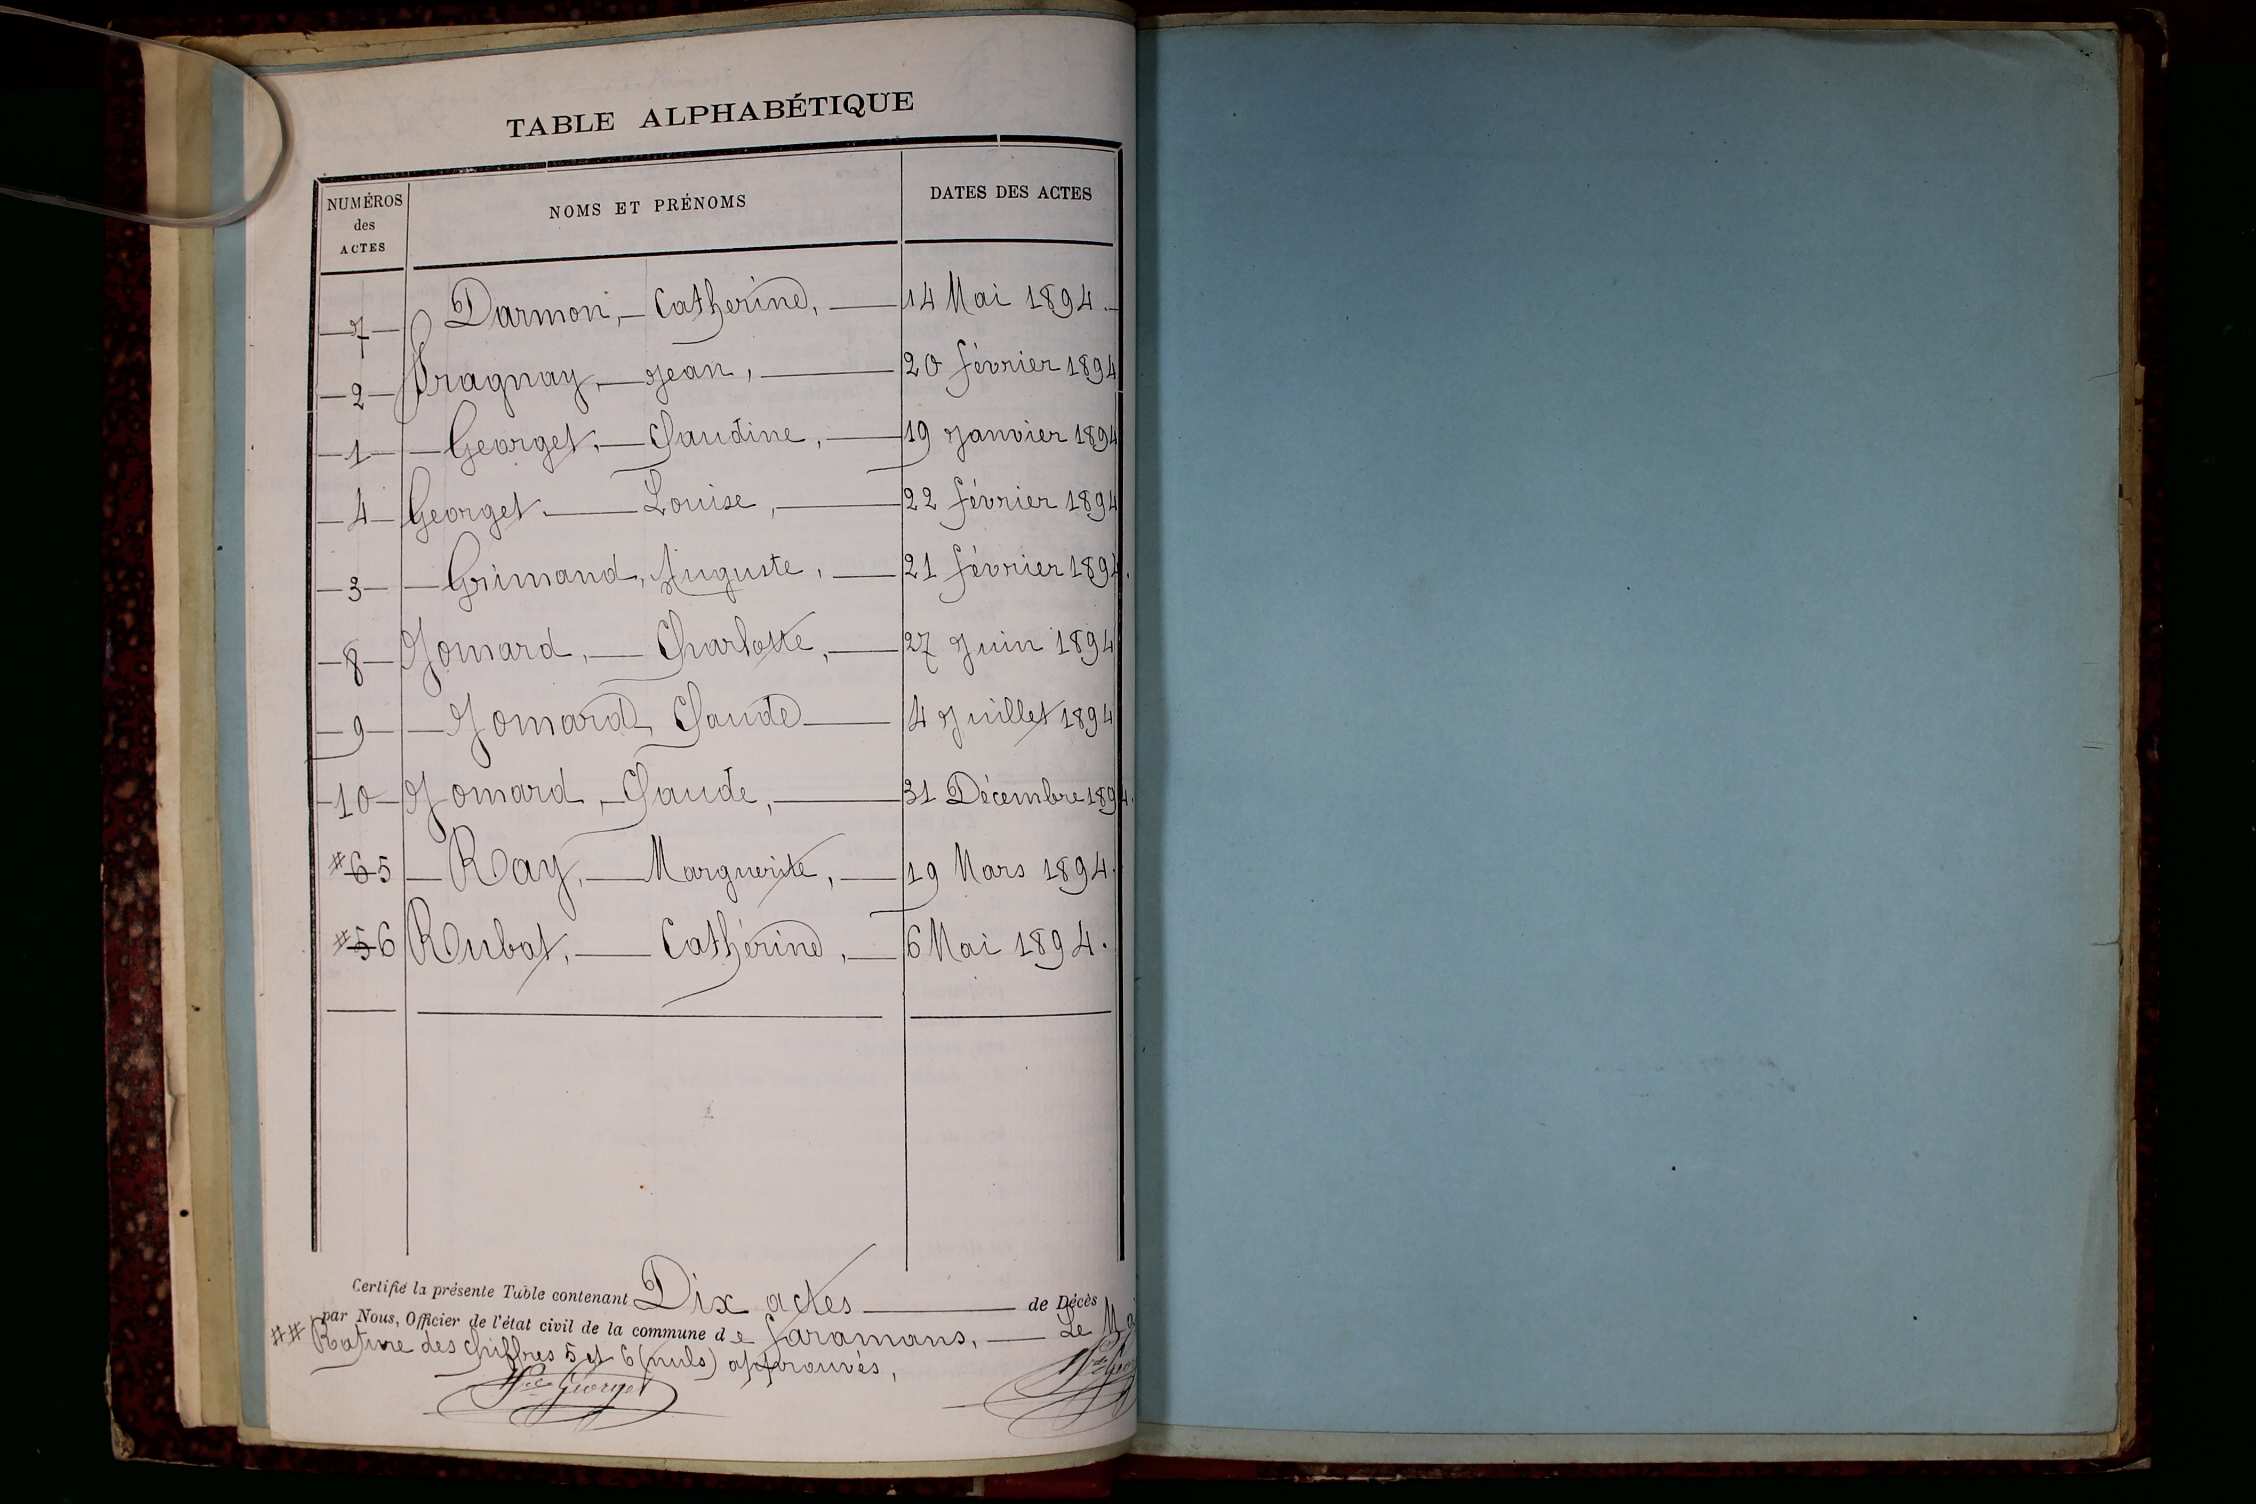 TABLE ALPHABÉTIQUE
NUMÉROS des ACTES NOMS ET PRÉNOMS DATES DES ACTES
7 Darmon, Catherine, 14 Mai 1894.
2 Fragnay, Jean, 20 février 1894
1 Georget, Claudine, 19 Janvier 1894
4 Georget Louise, 22 février 1894
3 Grimand, Auguste, 21 février 1894.
8 Jomard, Charlotte, 27 Juin 1894
9 Jomard Claude 4 Juillet 1894
10 Jomard, Claude, 31 Décembre 1894.
# 6 5 Ray, Marguerite, 19 Mars 1894.
# 5 6 Rubat, Cathérine, 6 Mai 1894.
Certifié la présente Table contenant Dix actes de Décès
par Nous, Officier de l'état civil de la commune de faramans, Le
## Rature des chiffres 5 et 6 (nuls) approuvés,
Georget